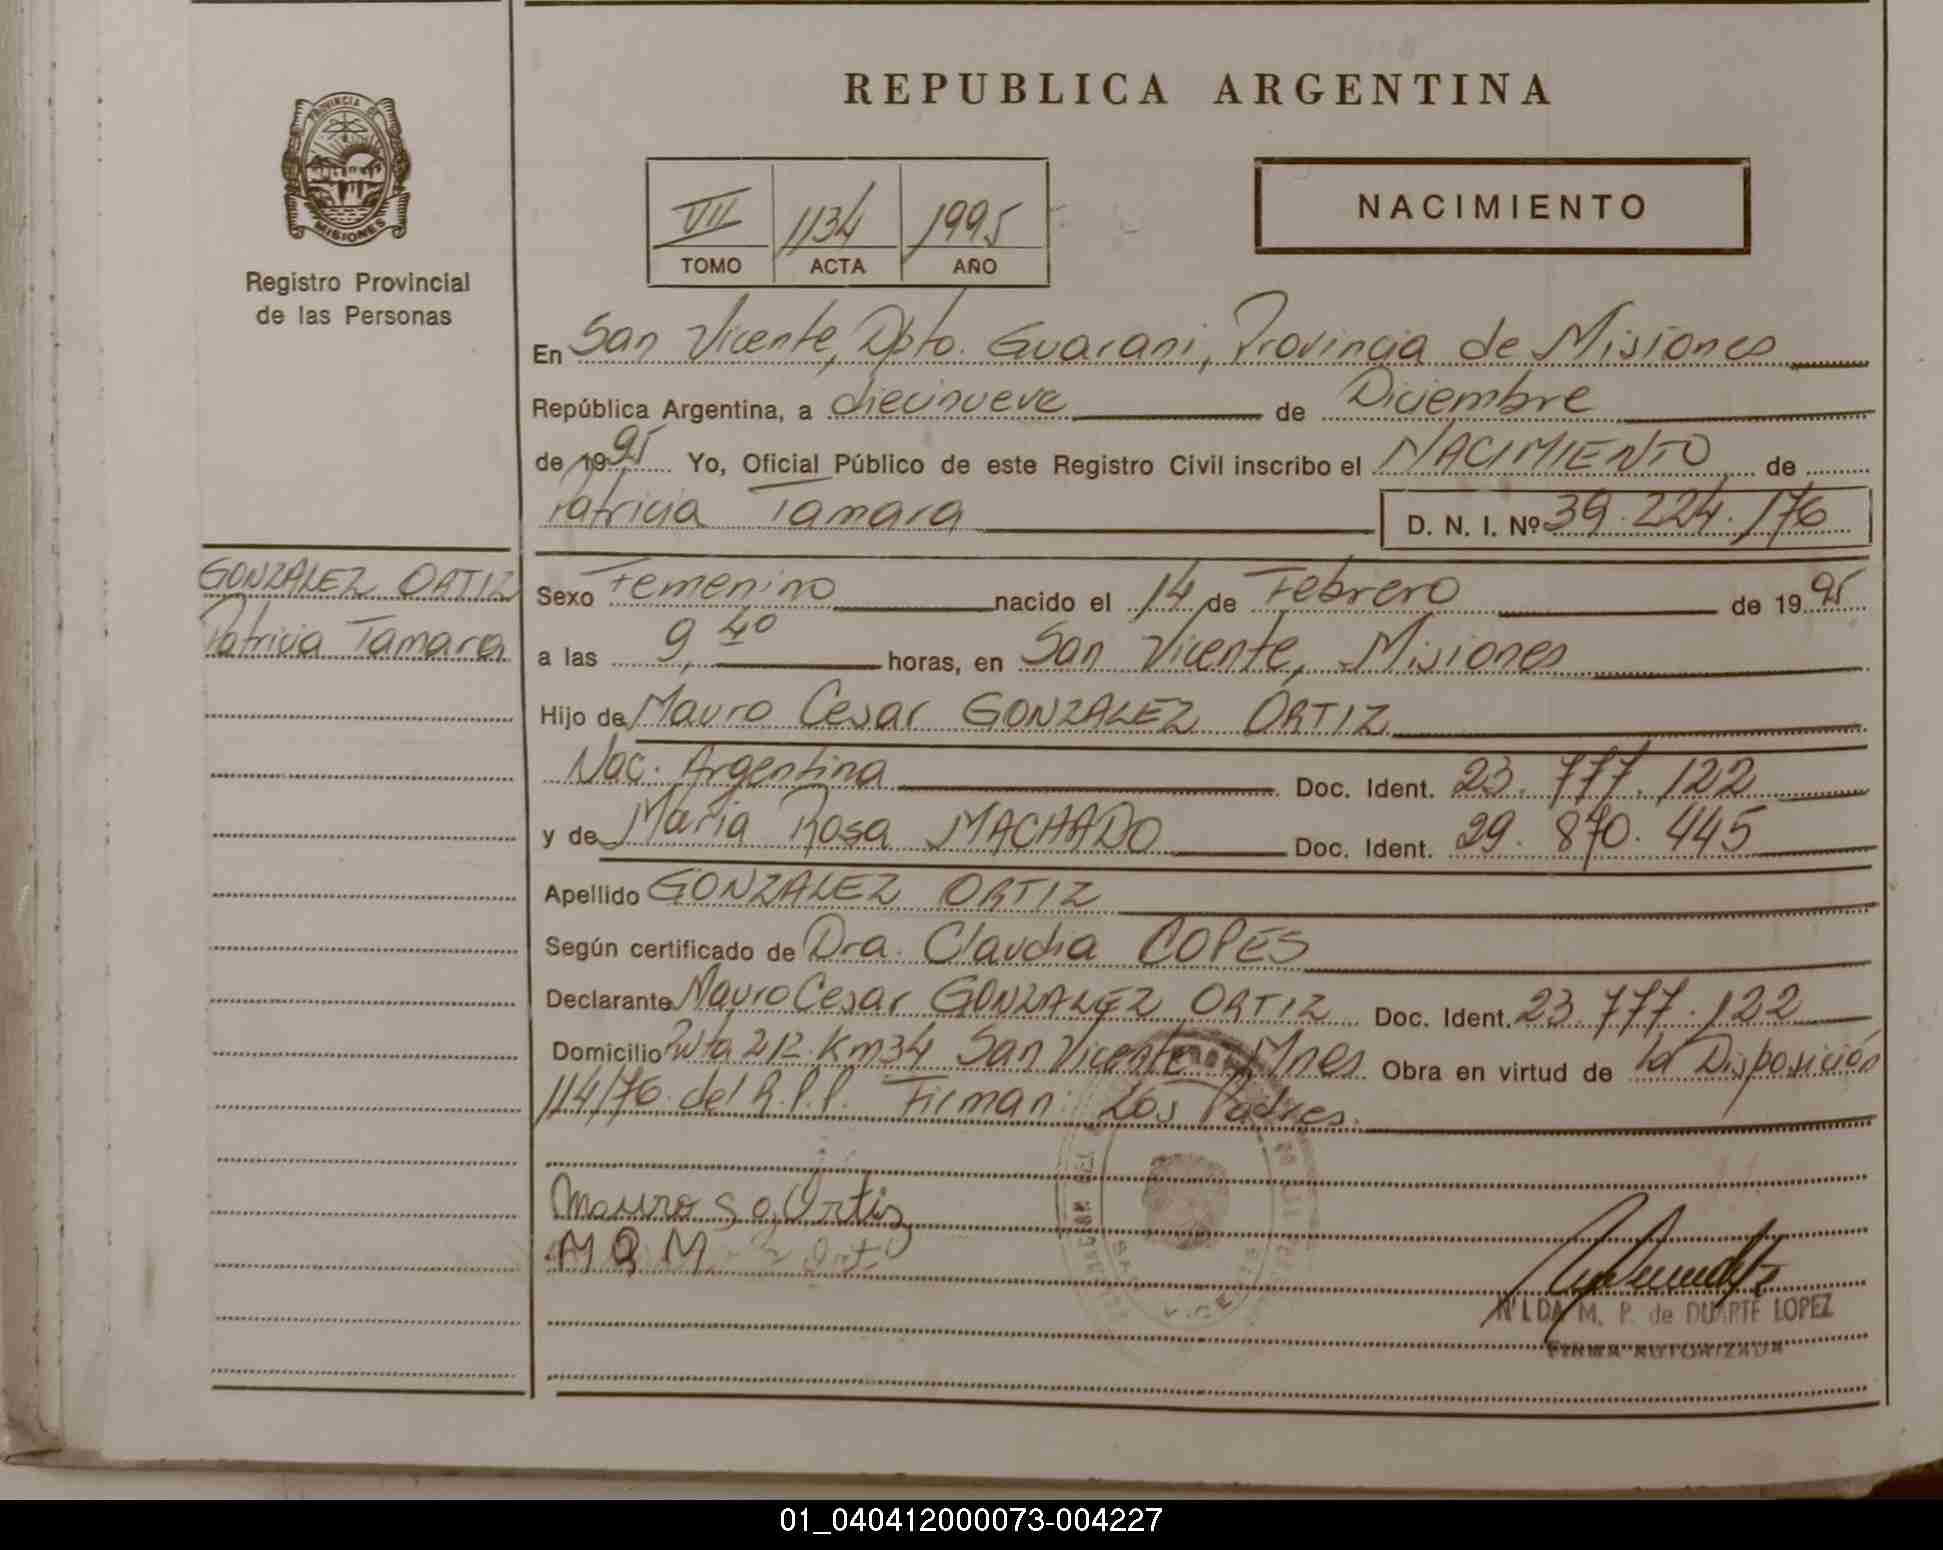 REPUBLICA ARGENTINA
PROVINCIA DE
MISIONES
Registro Provincial
de las Personas
VII 1134 1995
TOMO ACTA AÑO
NACIMIENTO
En San Vicente, Dpto. Guarani, Provincia de Misiones
República Argentina, a diecinueve de Diciembre
de 1995 Yo, Oficial Público de este Registro Civil inscribo el NACIMIENTO de
Patricia Tamara D. N. I. Nº 39.224.176
GONZALEZ ORTIZ
Patricia Tamara
Sexo Femenino nacido el 14 de Febrero de 1995
a las 9,40 horas, en San Vicente, Misiones
Hijo de Mauro Cesar GONZALEZ ORTIZ
Nac. Argentina Doc. Ident. 23.777.122
y de Maria Rosa MACHADO Doc. Ident. 29.870.445
Apellido GONZALEZ ORTIZ
Según certificado de Dra. Claudia COPES
Declarante Mauro Cesar GONZALEZ ORTIZ Doc. Ident. 23.777.122
Domicilio Ruta 212 Km 34 San Vicente Mnes Obra en virtud de la Disposición
114/76 del R.P.P. Firman: Los Padres.
Mauro Ortiz
M R M
NILDA M. P. de DUARTE LOPEZ
FIRMA AUTORIZADA
01_040412000073-004227